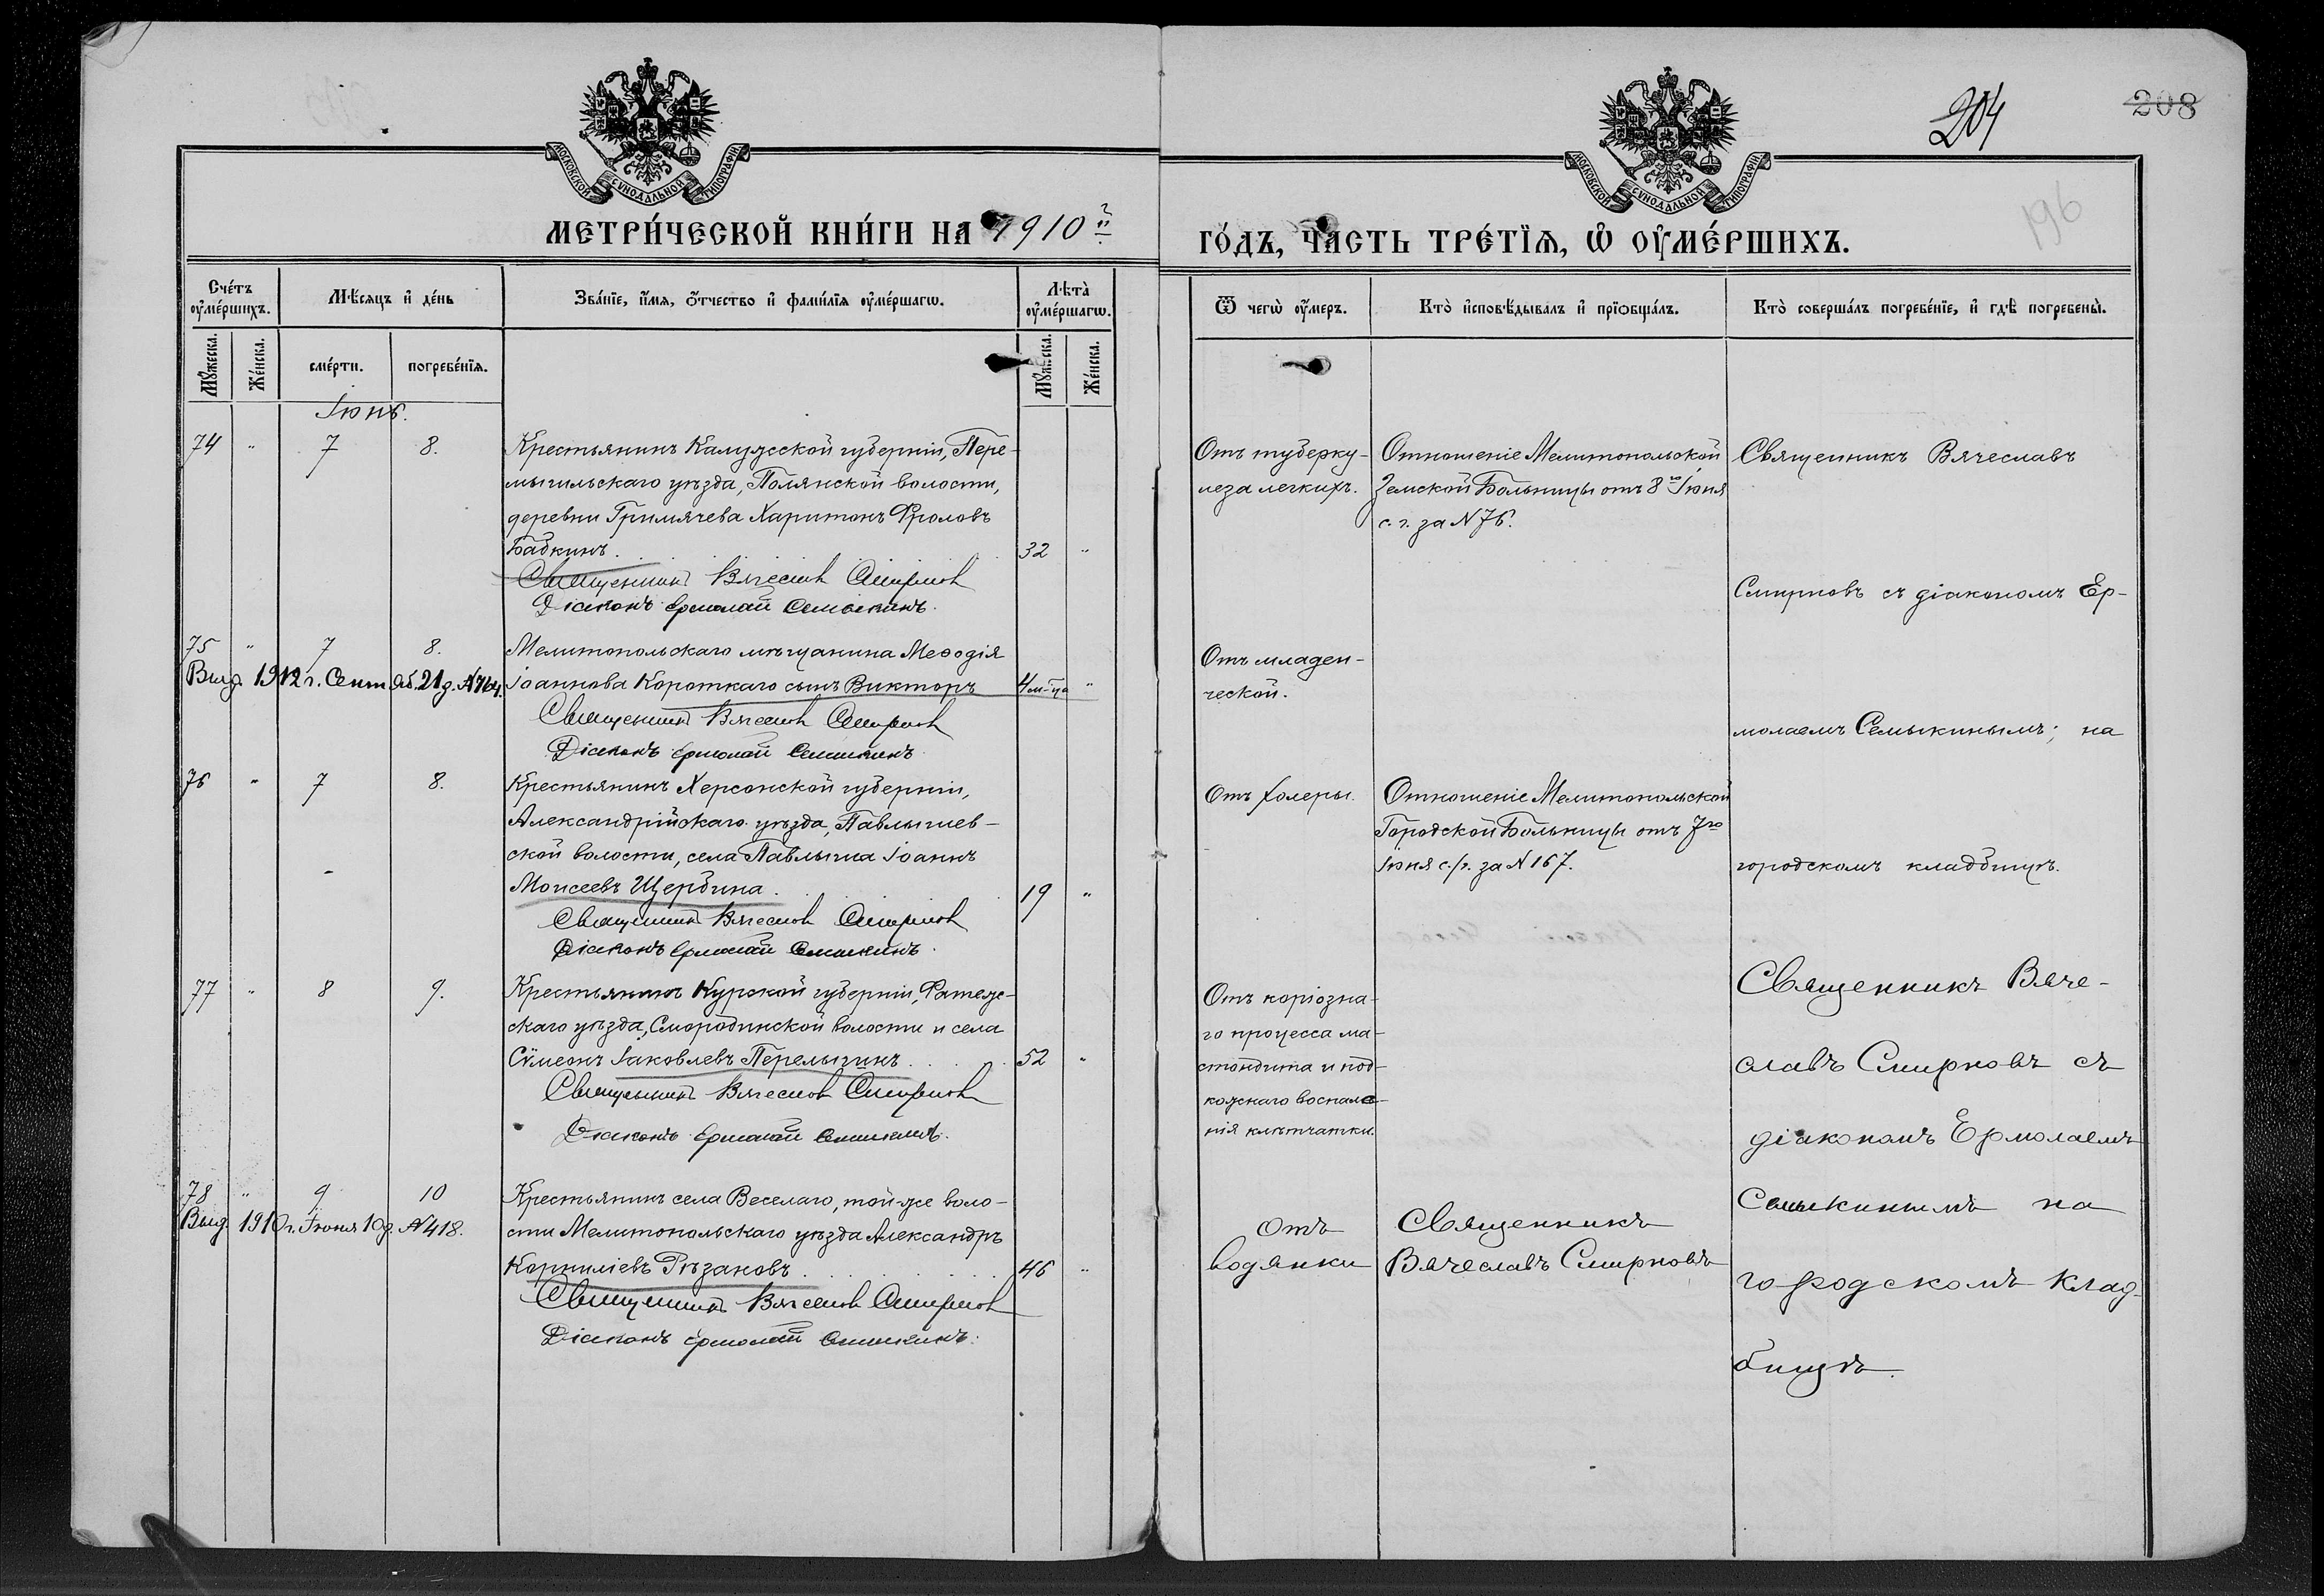 204
208
196
МОСКОВСКОЙ СѴНОДАЛЬНОЙ ТИПОГРАФІИ
МОСКОВСКОЙ СѴНОДАЛЬНОЙ ТИПОГРАФІИ
МЕТРИ́ЧЕСКОЙ КНИ́ГИ НА 1910й
ГО́ДЪ, ЧА́СТЬ ТРЕ́ТЇѦ, Ѽ ОУ҆МЕ́РШИХЪ.
Сче́тъ оу҆ме́ршихъ.
Мѣ́сѧцъ и҆ де́нь
Зва́нїе, и҆́мѧ, ѻ҆́тчество и҆ фами́лїѧ оу҆ме́ршагѡ.
Лѣ́та̀ оу҆ме́ршагѡ.
Ѿ чегѡ̀ оу҆́меръ.
Кто̀ и҆сповѣ́дывалъ и҆ прїѻбща́лъ.
Кто̀ соверша́лъ погребе́нїе, и҆ гдѣ̀ погребены̀.
Мꙋ́жеска.
Же́нска.
сме́рти.
погребе́нїѧ.
Мꙋ́жеска.
Же́нска.
Іюнь.
74 " 7 8. Крестьянинъ Калужской губерніи, Пере-
мышльскаго уѣзда, Полянской волости,
деревни Гримячева Харитонъ Фроловъ
Бабкинъ. 32 "
Священникъ Вячеславъ Смирновъ
Діаконъ Ермолай Семыкинъ.
Отъ туберку-
леза легкихъ.
Отношеніе Мелитопольской
Земской Больницы отъ 8го Іюня
с. г. за N 76.
Священникъ Вячеславъ
Смирновъ съ діакономъ Ер-
молаемъ Семыкинымъ; на
городскомъ кладбищѣ.
75 " 7 8. Мелитопольскаго мѣщанина Меѳодія
Выд. 1912 г. Сентяб. 21 д. N 764. Іоаннова Короткаго сынъ Викторъ 4 м-ца "
Священникъ Вячеславъ Смирновъ
Діаконъ Ермолай Семыкинъ
Отъ младен-
ческой.
76 " 7 8. Крестьянинъ Херсонской губерніи,
Александрійскаго уѣзда, Павлышев-
ской волости, села Павлыша Іоаннъ
Моисеевъ Щербина. 19 "
Священникъ Вячеславъ Смирновъ
Діаконъ Ермолай Семыкинъ.
Отъ холеры.
Отношеніе Мелитопольской
Городской Больницы отъ 7го
Іюня с/г. за N 167.
77 " 8 9. Крестьянинъ Курской губерніи, Фатеж-
скаго уѣзда, Смородинской волости и села
Сѵмеонъ Іаковлевъ Перелыгинъ 52 "
Священникъ Вячеславъ Смирновъ
Діаконъ Ермолай Семыкинъ.
Отъ каріозна-
го процесса ма-
стоидита и под-
кожнаго воспале-
нія клѣтчатки.
Священникъ Вяче-
славъ Смирновъ съ
діакономъ Ермолаемъ
Семыкинымъ на
городскомъ клад-
бищѣ.
78 " 9 10 Крестьянинъ села Веселаго, той-же воло-
Выд. 1910 г. Іюня 10 д. N 418. сти Мелитопольскаго уѣзда Александръ
Корниліевъ Рѣзановъ 46 "
Священникъ Вячеславъ Смирновъ
Діаконъ Ермолай Семыкинъ.
Отъ
водянки
Священникъ
Вячеславъ Смирновъ